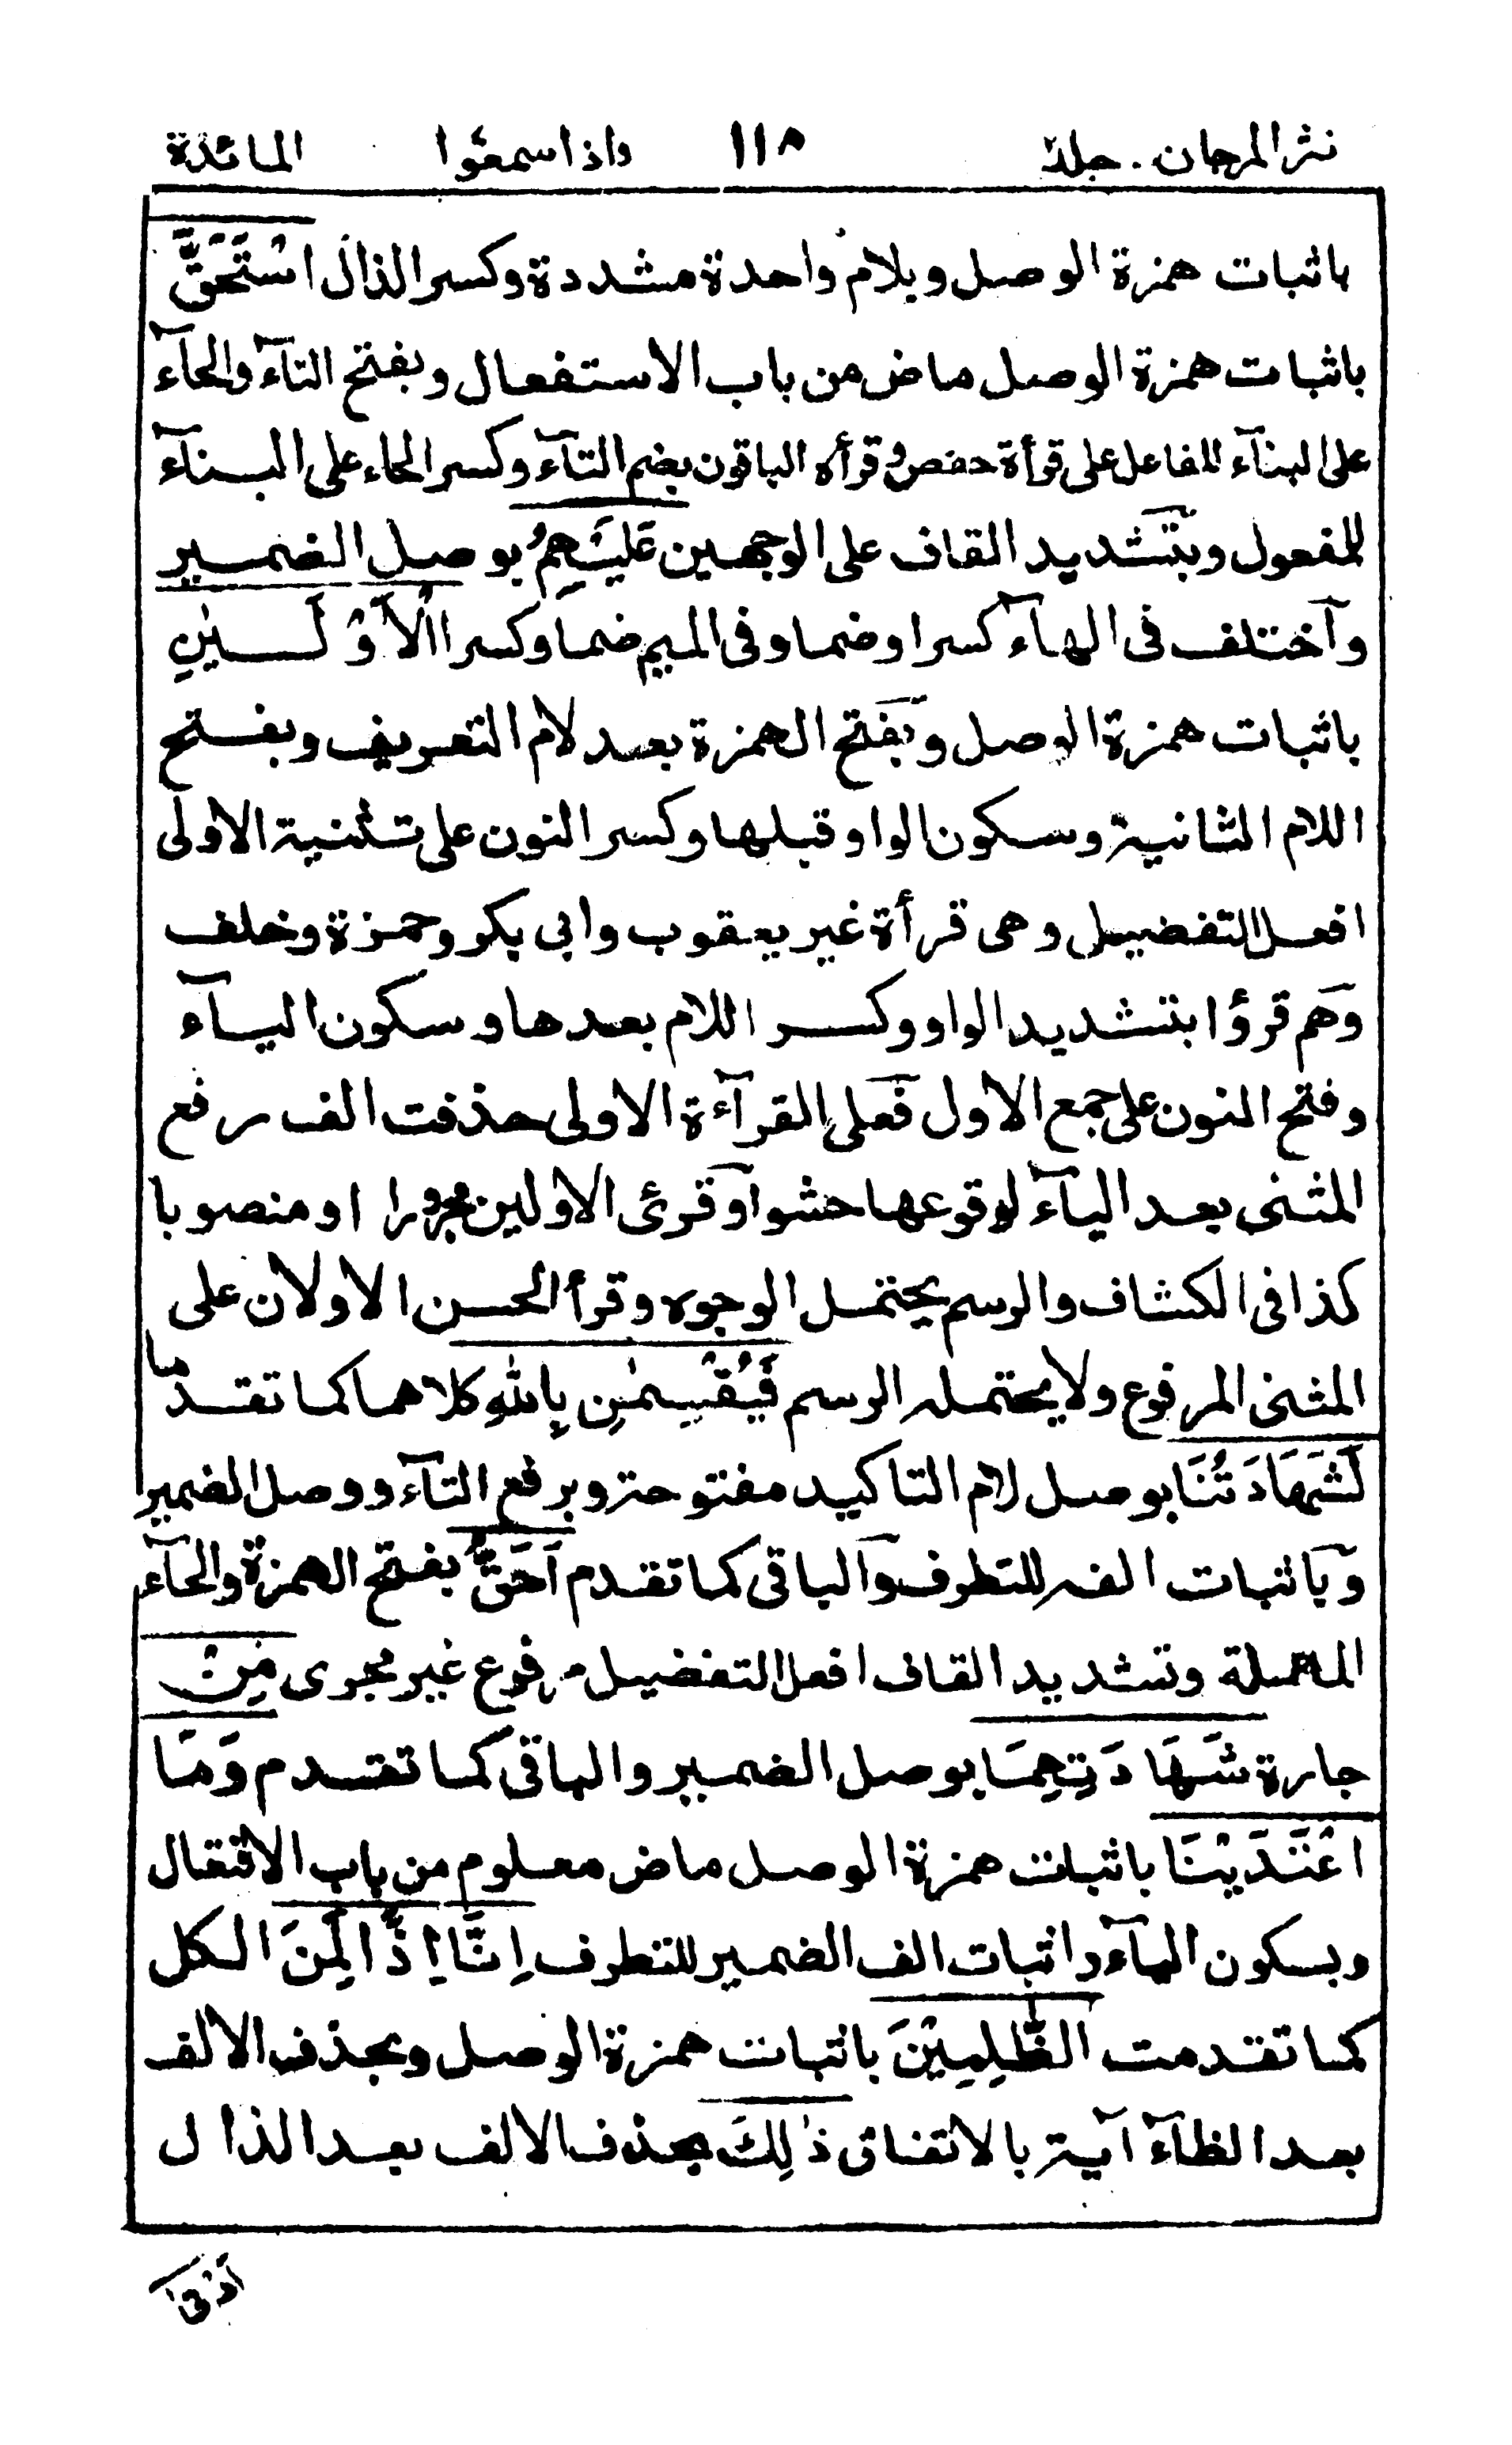 نثر المرجان. جلد ١١٨ واذا سمعوا المائدة
باثبات همزة الوصل وبلام واحدة مشددة وكسر الذال اسْتَحَقَّ
باثبات همزة الوصل ماض من باب الاستفعال وبفتح التآء والحآء
على البنآء للفاعل على قرأة حفص وقرأه الباقون بضم التآء وكسر الحاء على البنآء
للمفعول وبتشديد القاف على الوجهين عَلَيْهِمُ بوصل الضمير
وآختلف فى الهآء كسرا وضما وفى الميم ضما وكسرا الْاَوْلَيٰنِ
باثبات همزة الوصل وبفتح الهمزة بعد لام التعريف وبفتح
اللام الثانية وسكون الواو قبلها وكسر النون على تثنية الاولى
افعل التفضيل وهى قرأة غير يعقوب وابى بكر وحمزة وخلف
وهم قرؤا بتشديد الواو وكسر اللام بعدها وسكون اليآء
وفتح النون على جمع الاول فعلى القرآءة الاولى حذفت الف رفع
المثنى بعد اليآء لوقوعها حشوا وقرئ الاولين مجرورا او منصوبا
كذا فى الكشاف والرسم يحتمل الوجوه وقرأ الحسن الاولان على
المثنى المرفوع ولا يحتمله الرسم فَيُقْسِمٰنِ بِاللهِ كلاهما كما تقدما
لَشَهَادَتُنَا بوصل لام التاكيد مفتوحة وبرفع التآء ووصل الضمير
وباثبات الفه للتطرف والباقى كما تقدم اَحَقُّ بفتح الهمزة والحآء
المهملة وتشديد القاف افعل التفضيل مرفوع غير مجرى مِنْ
جارة شَهَادَتِهِمَا بوصل الضمير والباقى كما تقدم وَمَا
اعْتَدَيْنَا باثبات همزة الوصل ماض معلوم من باب الافتعال
وبسكون اليآء واثبات الف الضمير للتطرف اِنَّا اِذًا لَمِنَ الكل
كما تقدمت الظّٰلِمِيْنَ باثبات همزة الوصل وبحذف الالف
بعد الظآء آية بالاتفاق ذٰلِكَ بحذف الالف بعد الذال